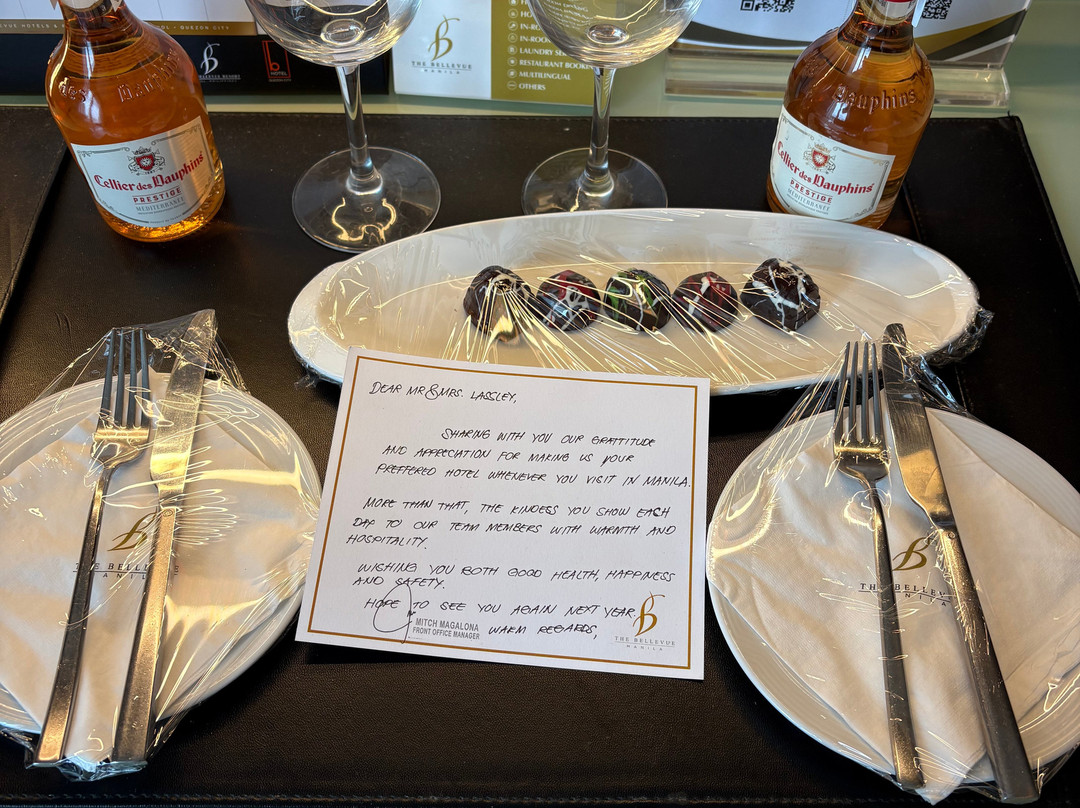 VUE HOTELS &
QUEZON CITY
des Dauphins
Cellier des Dauphins
PRESTIGE
MEDITERRANÉE
B
THE BELLEVUE RESORT
b
B
THE BELLEVUE
MANILA
IN-RO
LAUNDRY SE
RESTAURANT BOOKIN
MULTILINGUAL
OTHERS
Dauphins
Cellier des Dauphins
PRESTIGE
MEDITERRANÉE
DEAR MR & MRS. LASSLEY,
SHARING WITH YOU OUR GRATTITUDE
AND APPRECIATION FOR MAKING US YOUR
PREFFERED HOTEL WHENEVER YOU VISIT IN MANILA.
MORE THAN THAT, THE KINDESS YOU SHOW EACH
DAY TO OUR TEAM MEMBERS WITH WARMTH AND
HOSPITALITY.
WISHING YOU BOTH GOOD HEALTH, HAPPINESS
AND SAFETY.
HOPE TO SEE YOU AGAIN NEXT YEAR,
WARM REGARDS,
MITCH MAGALONA
FRONT OFFICE MANAGER
B
THE BELLEVUE
MANILA
B
THE BELLEVUE
MANILA
B
THE BELLEVUE
MANILA